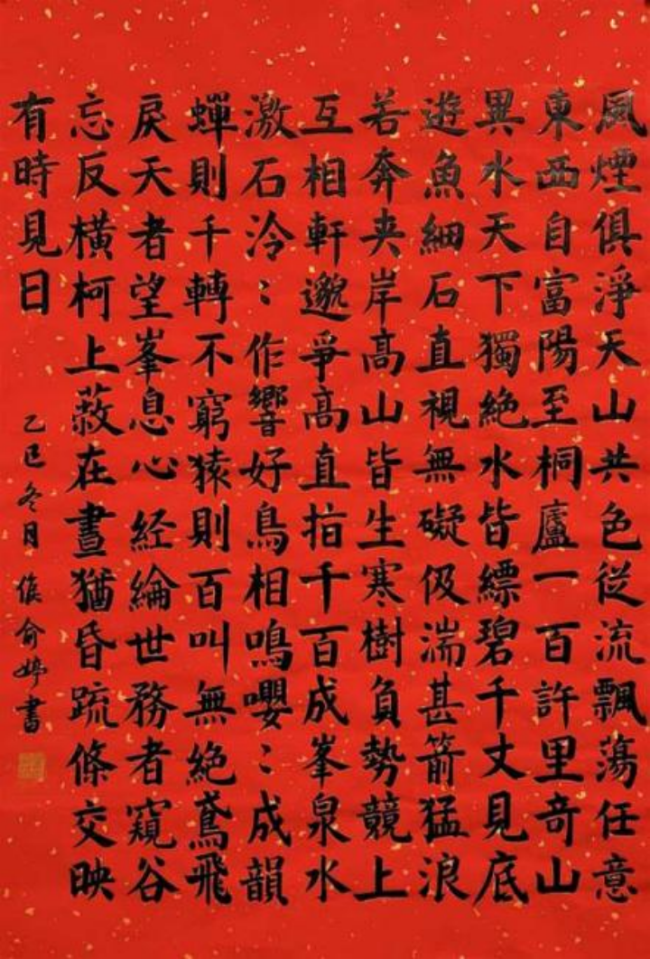 風煙俱淨天山共色從流飄蕩任意
東西自富陽至桐廬一百許里奇山
異水天下獨絕水皆縹碧千丈見底
遊魚細石直視無礙伋湍甚箭猛浪
若奔夾岸高山皆生寒樹負勢競上
互相軒邈爭高直指千百成峯泉水
激石泠：作響好鳥相鳴嚶：成韻
蟬則千轉不窮猿則百叫無絕鳶飛
戾天者望峯息心經綸世務者窺谷
忘反橫柯上蔽在晝猶昏疏條交映
有時見日
乙巳冬月侯俞婷書